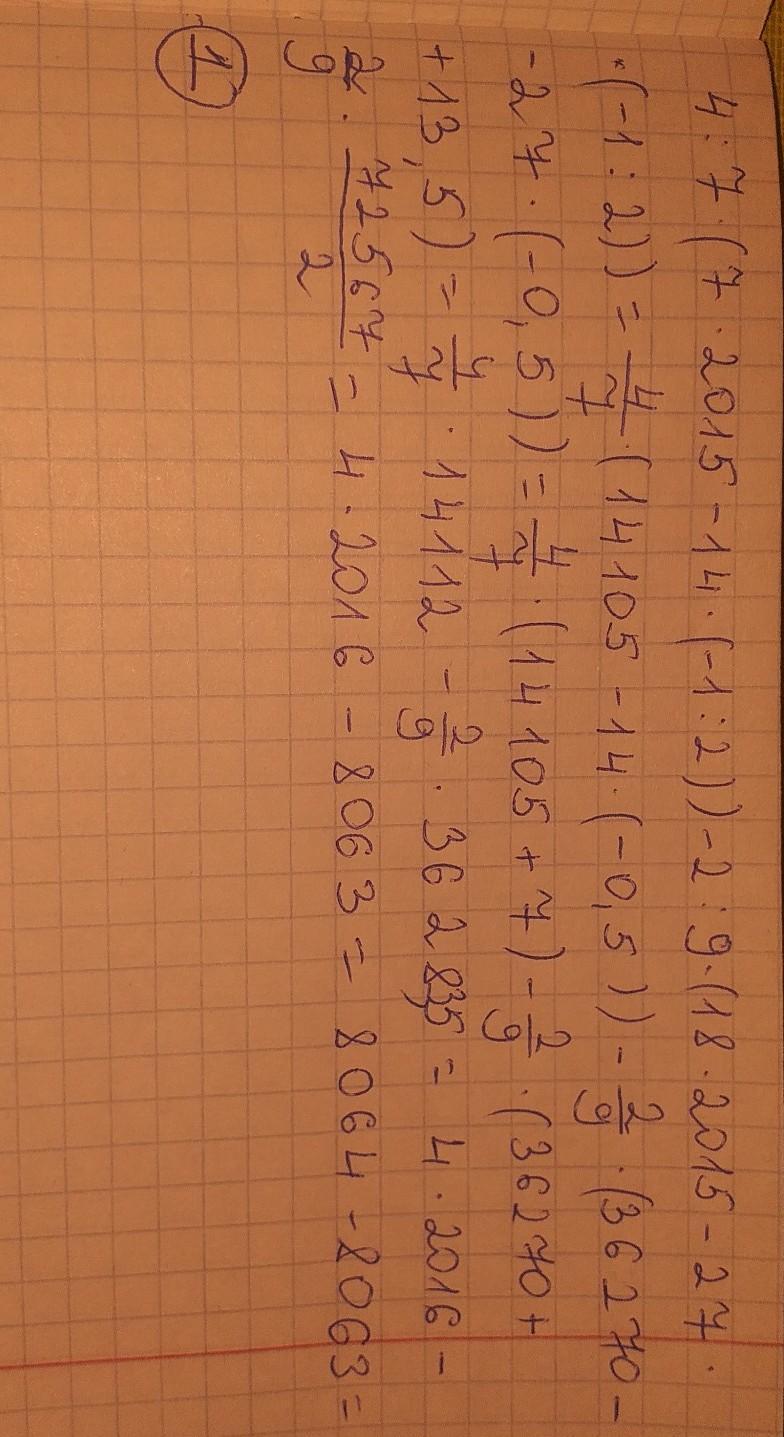 4:7·(7·2015-14·(-1:2))-2:9·(18·2015-27·
*(-1:2))=4/7·(14105-14·(-0,5))-2/9·(36270-
-27·(-0,5))=4/7·(14105+7)-2/9·(36270+
+13,5)=4/7·14112-2/9·36283,5=4·2016-
2/9·72567/2=4·2016-8063=8064-8063=
1